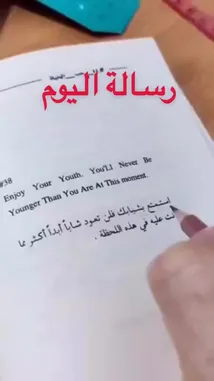 رسالة اليوم
#38
Enjoy Your Youth. You'll Never Be
Younger Than You Are At This moment.
استمتع بشبابك فلن تعود شاباً أبداً أكثر مما
أنت عليه في هذه اللحظة .